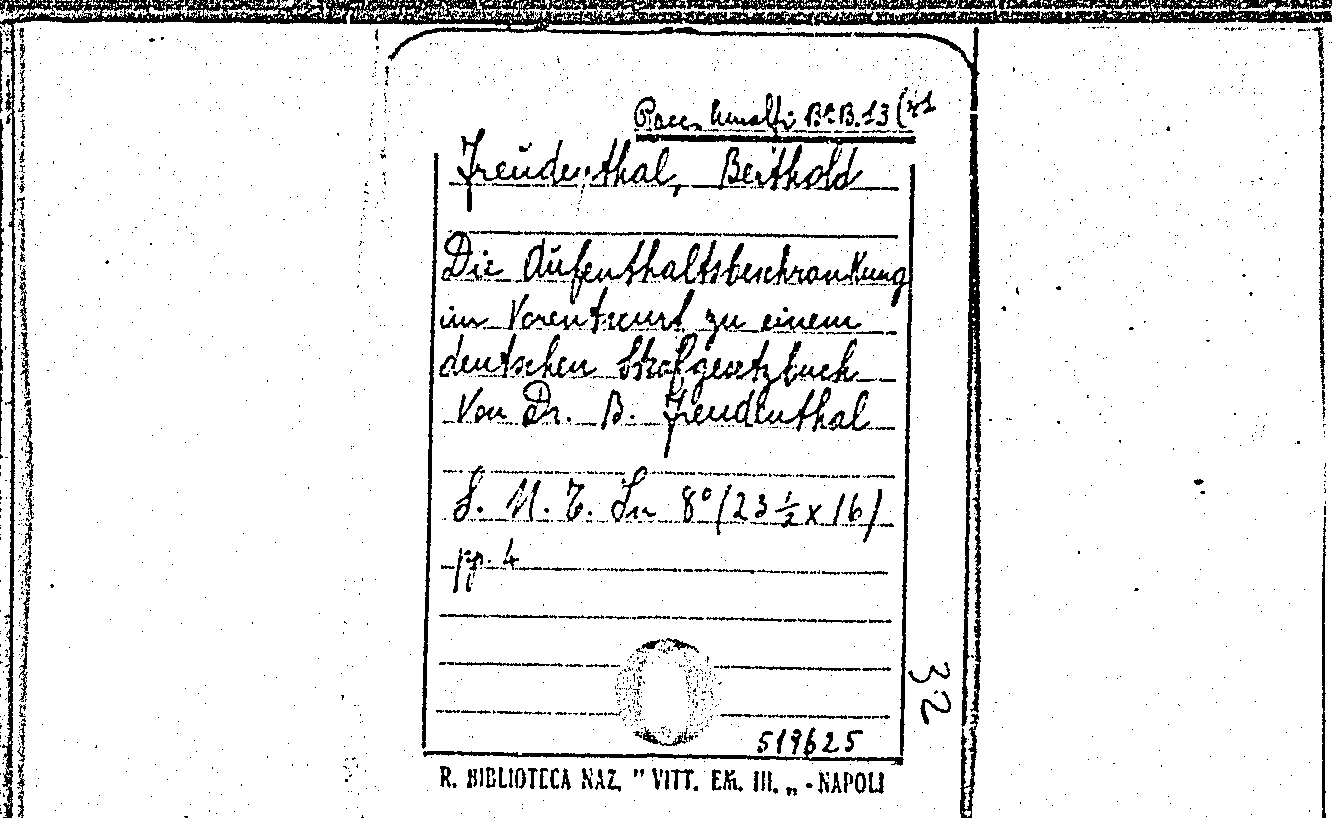 Racc. Amalfi B^a B.13 (21
Freudenthal, Berthold
Die Aufenthaltsbeschrankung
im Vorentwurf zu einem
deutschen Strafgesetzbuch
Von Dr. B. Freudenthal
S. N. T. In 8° (23 ½ x 16)
pp. 4
32
519625
R. BIBLIOTECA NAZ. " VITT. EM. III. „ - NAPOLI